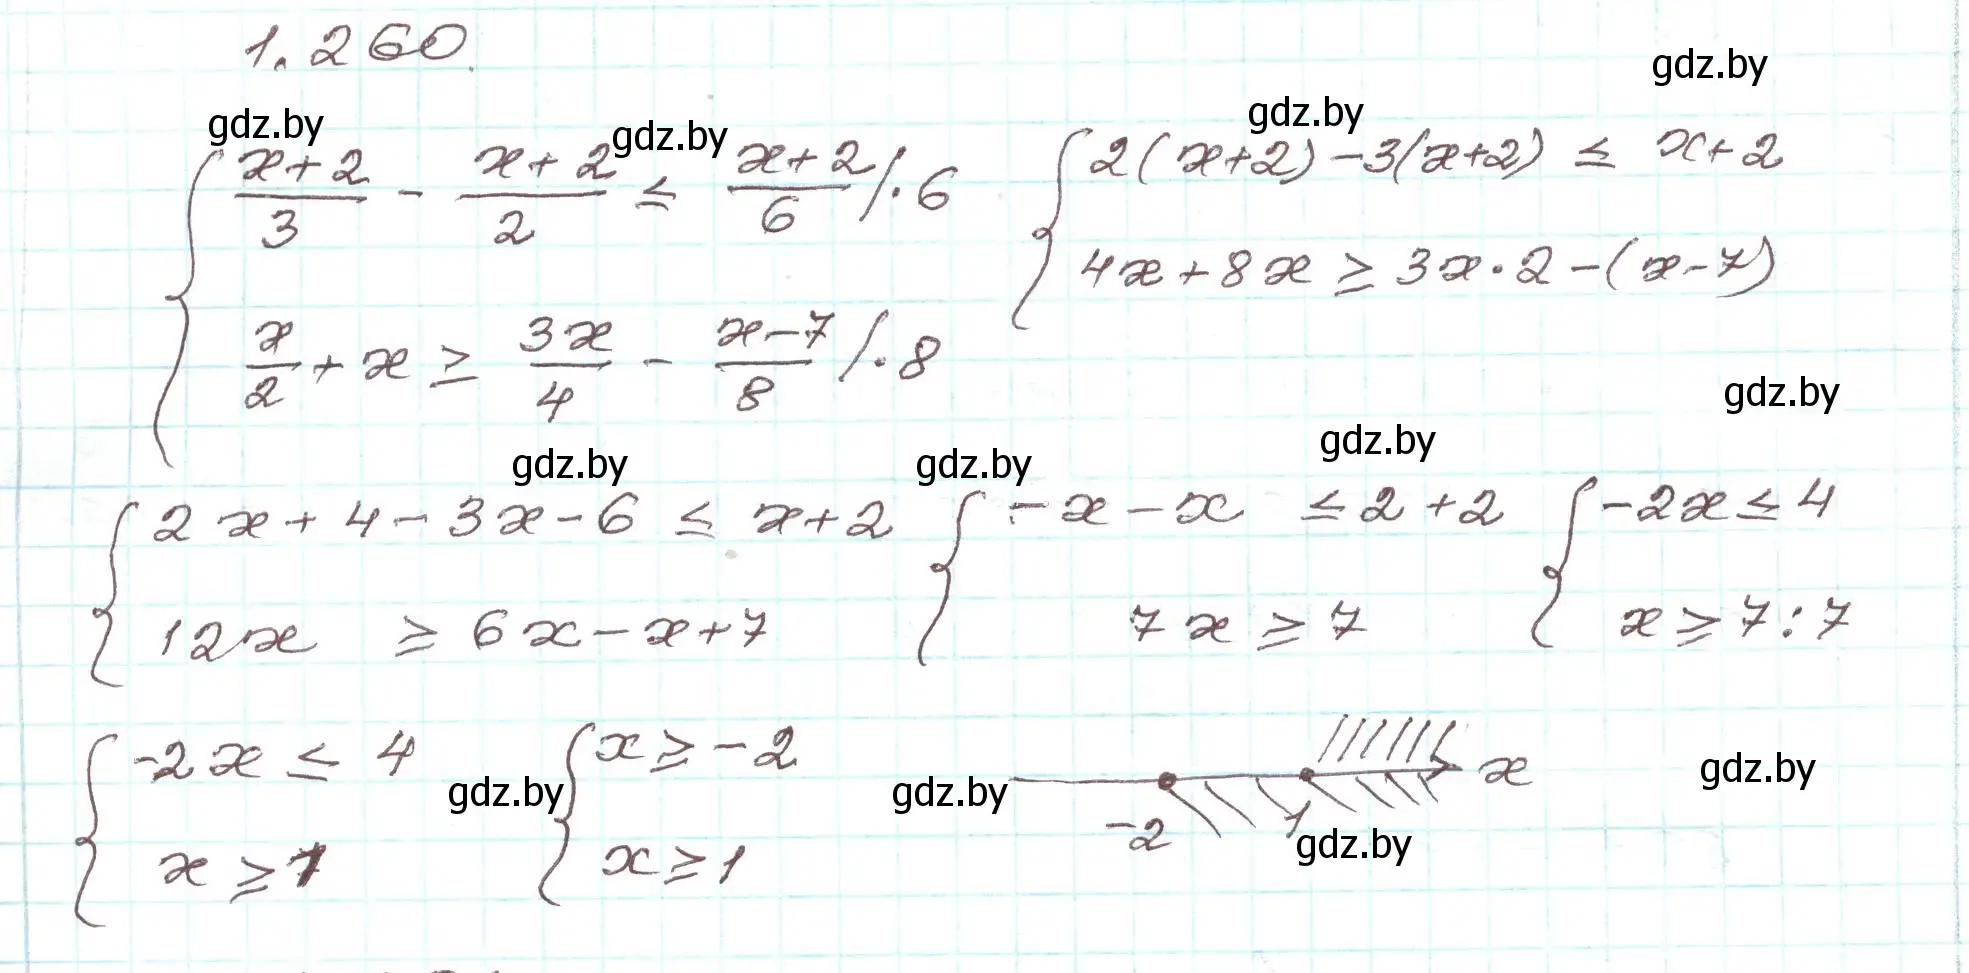 1.260.
gdz.by gdz.by gdz.by gdz.by
{ (x+2)/3 - (x+2)/2 ≤ (x+2)/6 /·6
x/2 + x ≥ 3x/4 - (x-7)/8 /·8
{ 2(x+2)-3(x+2) ≤ x+2
4x+8x ≥ 3x·2-(x-7)
gdz.by gdz.by gdz.by gdz.by
{ 2x+4-3x-6 ≤ x+2
12x ≥ 6x-x+7
{ -x-x ≤ 2+2
7x ≥ 7
{ -2x ≤ 4
x ≥ 7:7
{ -2x ≤ 4
x ≥ 1
{ x ≥ -2
x ≥ 1
-2 1 x
gdz.by gdz.by gdz.by gdz.by